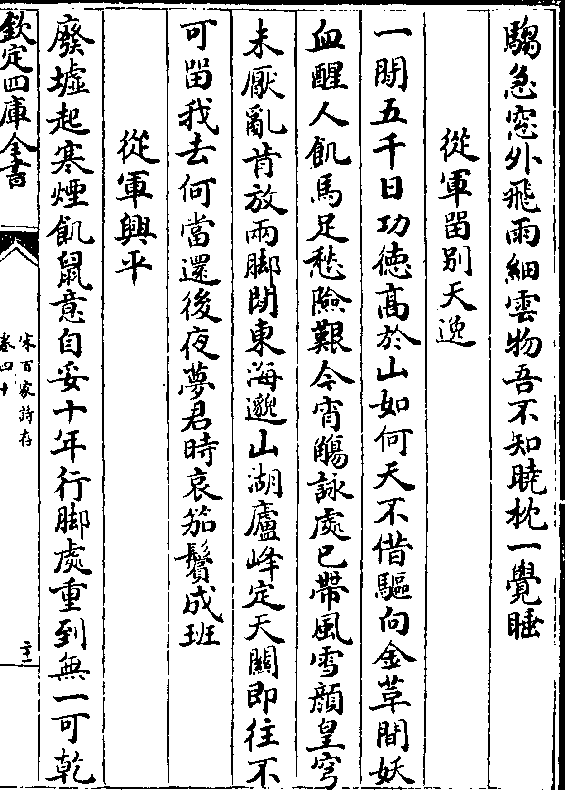 騶急窓外飛雨細雲物吾不知曉枕一覺睡
從軍留別天逸
一閒五千日功徳髙於山如何天不借驅向金革間妖
血醒人飢馬足愁險艱今宵觴詠處已帶風雪顔皇穹
未厭亂肯放兩脚閒東海邈山湖廬峰定天關即往不
可留我去何當還後夜夢君時哀笳鬢成班
從軍興平
廢墟起寒煙飢鼠意自妥十年行脚處重到無一可乾
欽定四庫全書
宋百家詩存
卷四十